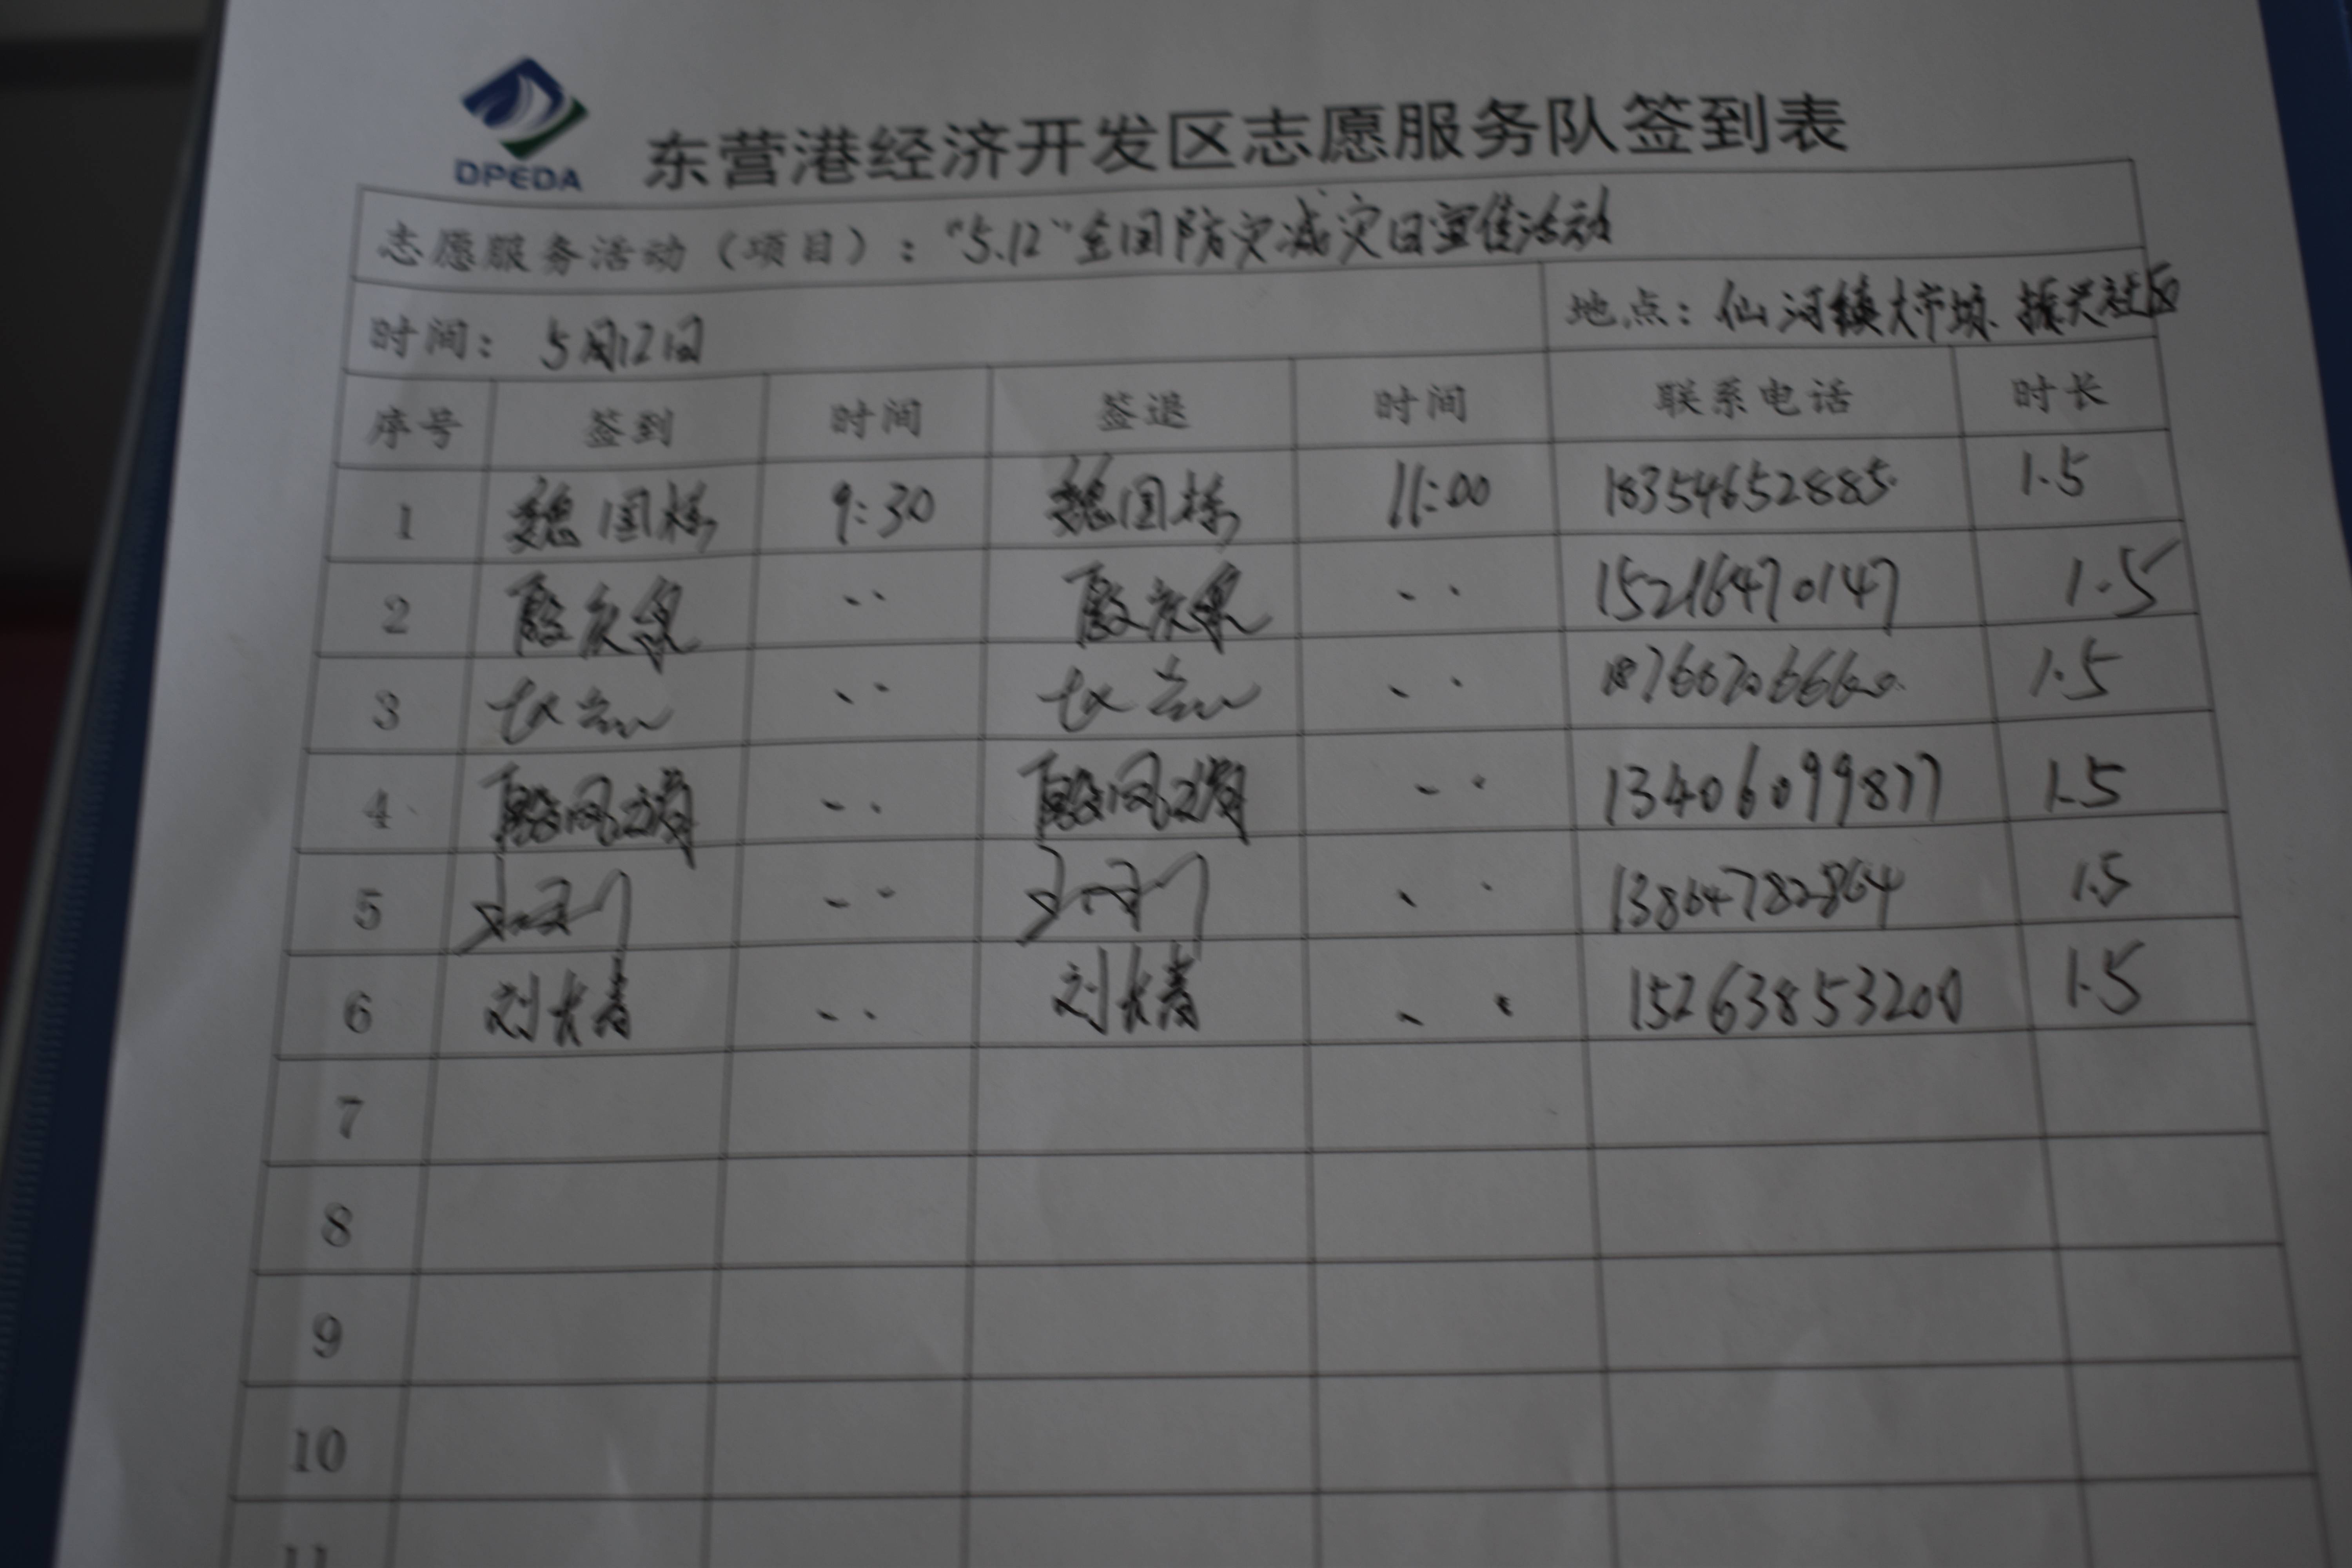 DPEDA
东营港经济开发区志愿服务队签到表
志愿服务活动（项目）："5.12"全国防灾减灾日宣传活动
时间：5月12日 地点：仙河镇大市场、振兴社区
序号 签到 时间 签退 时间 联系电话 时长
1 魏国栋 9:30 魏国栋 11:00 18354652885 1.5
2 15216470147 1.5
3 1.5
4 殷风 殷风 13406099877 1.5
5 13864782864 1.5
6 刘长青 刘长青 15263853200 1.5
7
8
9
10
11